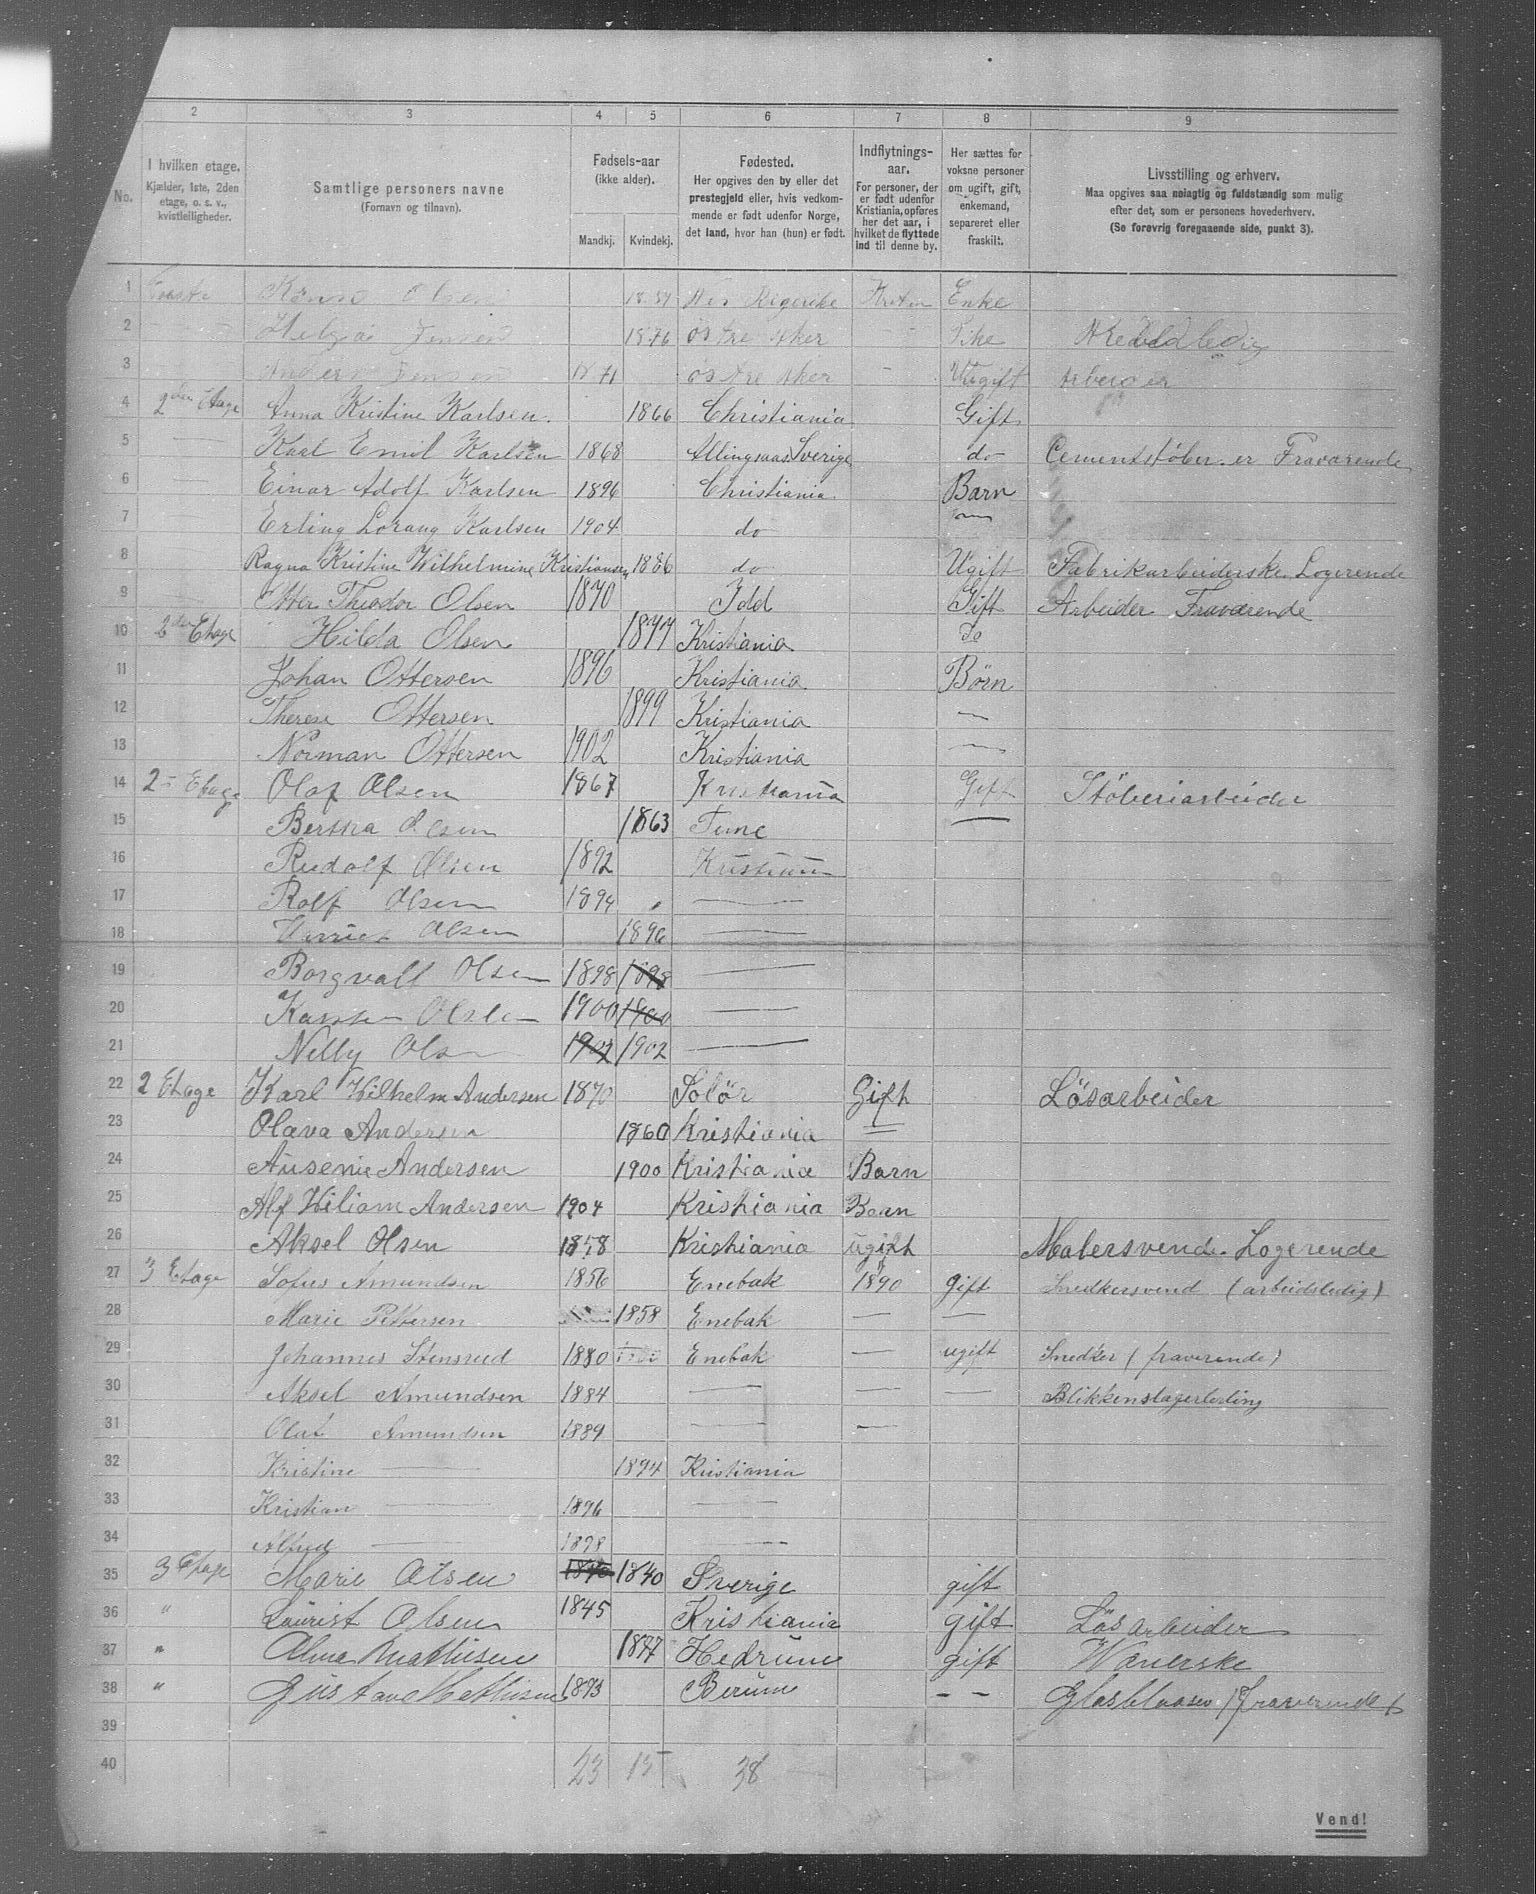 2 3 4 5 6 7 8 9
No.
I hvilken etage.
Kjælder, 1ste, 2den
etage, o. s. v.,
kvistleiligheder.
Samtlige personers navne
(Fornavn og tilnavn).
Fødsels-aar
(ikke alder).
Mandkj. Kvindekj.
Fødested.
Her opgives den by eller det
prestegjeld eller, hvis vedkom-
mende er født udenfor Norge,
det land, hvor han (hun) er født.
Indflytnings-
aar.
For personer, der
er født udenfor
Kristiania, opføres
her det aar, i
hvilket de flyttede
ind til denne by.
Her sættes for
voksne personer
om ugift, gift,
enkemand,
separeret eller
fraskilt.
Livsstilling og erhverv.
Maa opgives saa nøiagtig og fuldstændig som mulig
efter det, som er personens hovederhverv.
(Se forøvrig foregaaende side, punkt 3).
1 Olsen Enke
2 Helga Jensen 1876 östre Aker Pike
3 Jensen 1871 östre Aker Ugift
4 2den Etage Anna Kristine Karlsen. 1866 Christiania Gift
5 Karl Emil Karlsen 1868 Allingsaas Sverige do Cementstøber er Fraværende
6 Einar Adolf Karlsen 1896 Christiania Barn
7 Erling Lorang Karlsen 1904 do
8 Ragna Kristine Wilhelmine Kristiansen 1886 do Ugift Fabrikarbeiderske Logerende
9 Theodor Olsen 1870 Idd Gift Arbeider Fraværende
10 2den Etage Hilda Olsen 1877 Kristiania Do
11 Johan Ottersen 1896 Kristiania Børn
12 Therese Ottersen 1899 Kristiania —
13 Norman Ottersen 1902 Kristiania —
14 2 Etage Olaf Olsen 1867 Kristiania Gift Støberiarbeider
15 Bertha Olsen 1863 Tune —
16 Rudolf Olsen 1892 Kristiania
17 Rolf Olsen 1894 —
18 Olsen 1896 —
19 Borgvall Olsen 1898 1898 —
20 Karsten Olsen 1900 1900 —
21 Nelly Olsen 1902 1902 —
22 2 Etage Karl Wilhelm Andersen 1870 Solör Gift Lösarbeider
23 Olava Andersen 1860 Kristiania —
24 Andersen 1900 Kristiania Barn
25 Alf Wiliam Andersen 1904 Kristiania Barn
26 Aksel Olsen 1858 Kristiania ugift Malersvend. Logerende
27 3 Etage Sofus Amundsen 1856 Enebak 1890 gift Snedkersvend (arbeidsledig)
28 Marie Pettersen 1858 Enebak — —
29 Johannes Stensrud 1880 Enebak — ugift Snedker (fraverende)
30 Aksel Amundsen 1884 — — — Blikkenslagerlerling
31 Olaf Amundsen 1889 — —
32 Kristine — 1894 Kristiania
33 Kristian — 1896 —
34 Alfred — 1898 —
35 3 Etage Marie Olsen 1840 1840 Sverige gift
36 " Laurist Olsen 1845 Kristiania gift Lösarbeider
37 " Alma Mathisen 1877 Hedrum gift
38 " Gustav Mathisen 1873 Berum — — Glasblaaser (fraverende)
39
40 23 15 38
Vend!